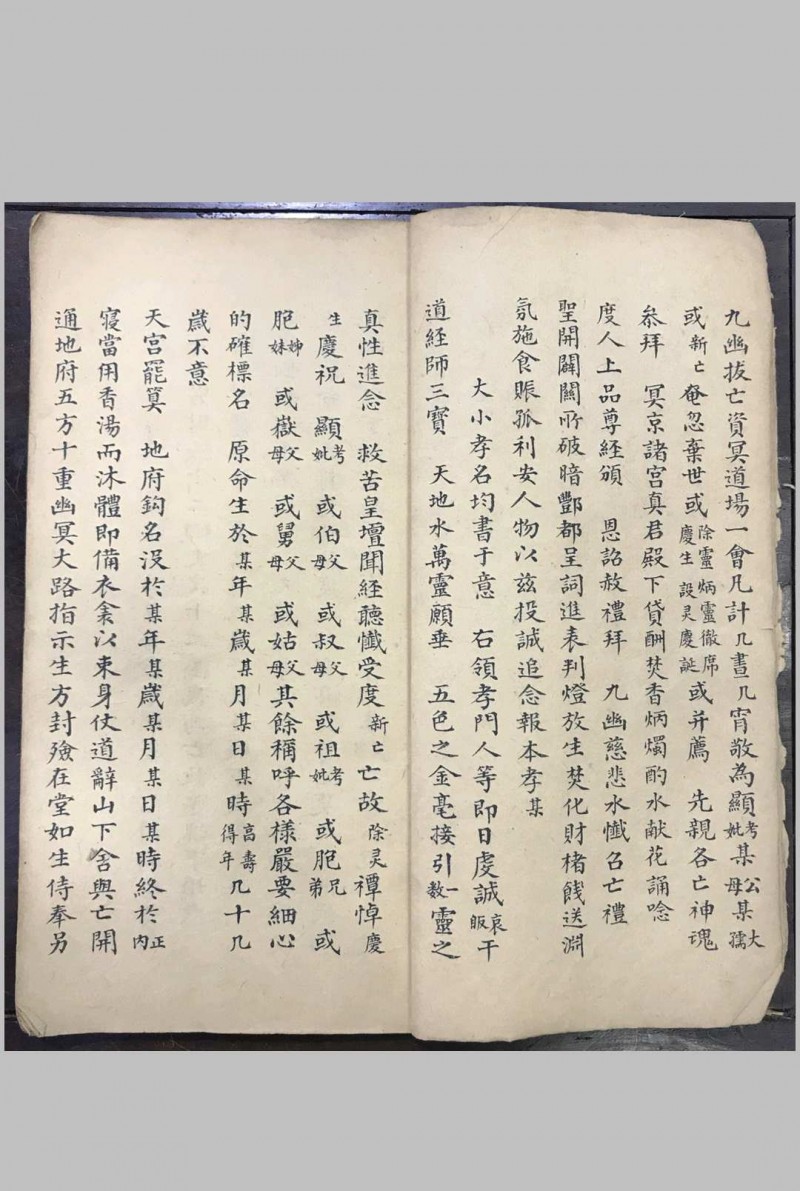 九幽拔亡資冥道場一會凡計几晝几宵敬為顯考妣某公母某大孺
或新亡奄忽棄世或除靈炳靈徹席慶生設灵慶誕或并薦　先親各亡神魂
叅拜　冥京諸宫真君殿下貸酬焚香炳燭酌水献花誦唸
度人上品尊経頒　恩詔赦禮拜　九幽慈悲水懺召亡禮
聖開闢關所破暗酆都呈詞進表判燈放生焚化財楮餞送淵
氛施食賑孤利安人物以兹投誠追念報本孝某
大小孝名均書于意　右領孝門人等即日虔誠哀皈干
道経師三寳　天地水萬靈願垂　五色之金毫接引一数靈之
真性進念　救苦皇壇聞経聽懺受度新亡亡故除灵禫悼慶
生慶祝　顯考妣或伯父母　或叔父母　或祖考妣　或胞兄弟或
胞姊妹　或嶽父母　或舅父母　或姑父母其餘稱呼各樣嚴要細心
的確標名　原命生於某年某歲某月某日某時高壽得年几十几
歲不意
天宫罷筭　地府鈎名没於某年某歲某月某日某時終於正内
寝當用香湯而沐體即備衣衾以束身仗道辭山下舍與亡開
通地府五方十重幽冥大路指示生方封殮在堂如生侍奉另